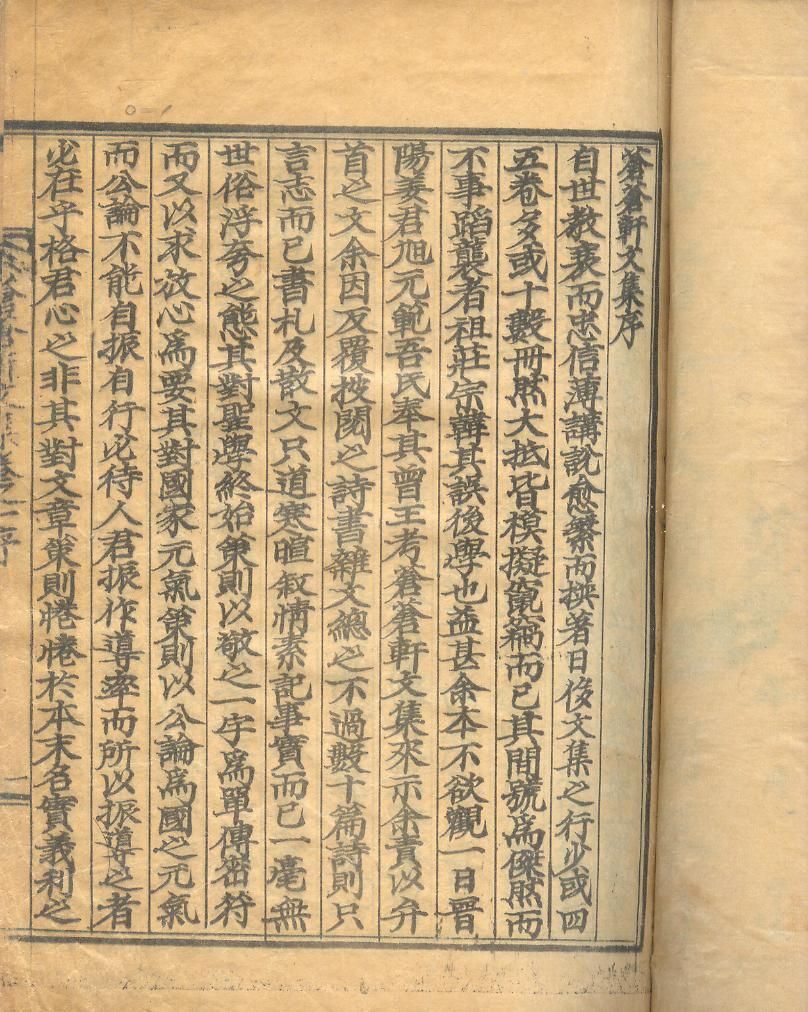 蒼蒼軒文集序
自世教衰而忠信薄講說愈繁而撰著日侈文集之行少或四
五卷多或十數冊然大抵皆模擬竄竊而已其間號爲傑然而
不事蹈襲者祖莊宗韓其誤後學也益甚余本不欲觀一日晋
陽姜君旭元範吾氏奉其曾王考蒼蒼軒文集來示余責以弁
首之文余因反覆披閱之詩書雜文總之不過數十篇詩則只
言志而已書札及散文只道寒暄叙情素記事實而已一毫無
世俗浮夸之態其對聖學終始策則以敬之一字爲單傳密符
而又以求放心爲要其對國家元氣策則以公論爲國之元氣
而公論不能自振自行必待人君振作導率而所以振導之者
必在乎格君心之非其對文章策則惓惓於本末名實義利之
蒼蒼軒文集卷之一序
一